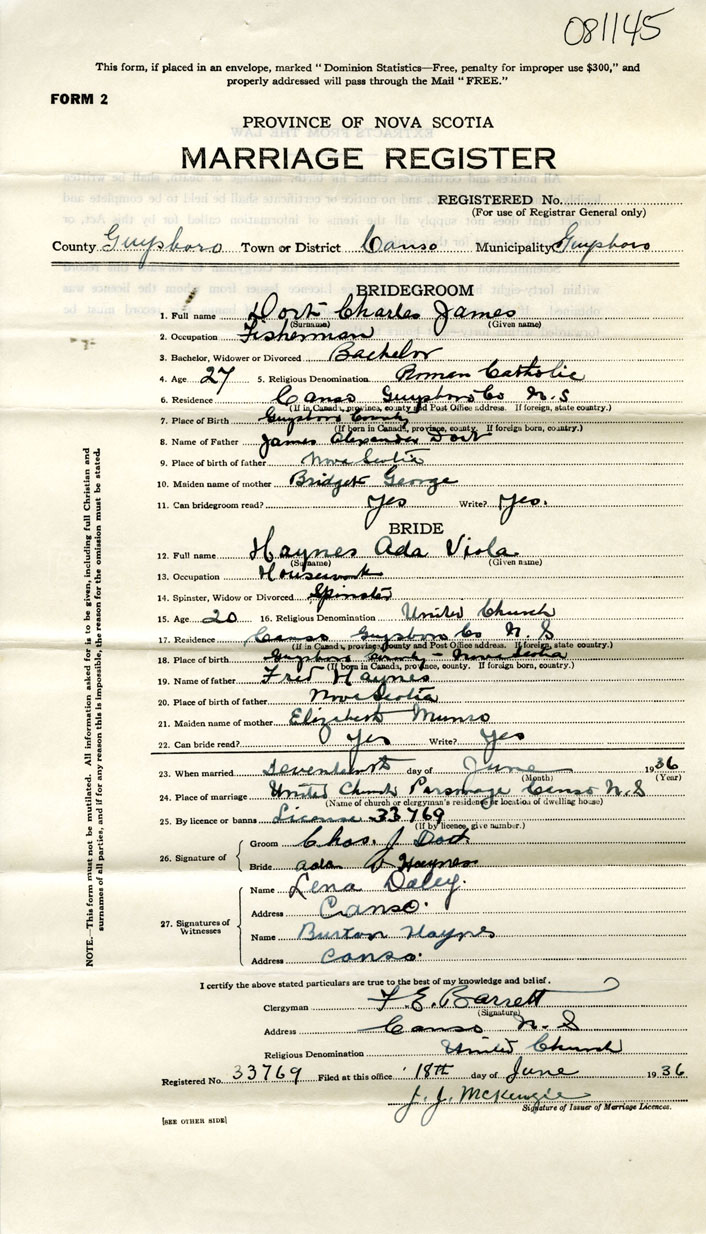 081145
This form, if placed in an envelope, marked "Dominion Statistics—Free, penalty for improper use $300," and
properly addressed will pass through the Mail "FREE."
FORM 2
PROVINCE OF NOVA SCOTIA
MARRIAGE REGISTER
REGISTERED No.
(For use of Registrar General only)
County Guysboro Town or District Canso Municipality Guysboro
BRIDEGROOM
1. Full name Dort Charles James
(Surname) (Given name)
2. Occupation Fisherman
3. Bachelor, Widower or Divorced Bachelor
4. Age 27 5. Religious Denomination Roman Catholic
6. Residence Canso Guysboro Co N.S
(If in Canada, province, county and Post Office address. If foreign, state country.)
7. Place of Birth Guysboro County
(If born in Canada, province, county. If foreign born, country.)
8. Name of Father James Alexander Dort
9. Place of birth of father Nova Scotia
10. Maiden name of mother Bridget George
11. Can bridegroom read? Yes Write? Yes.
BRIDE
12. Full name Haynes Ada Viola
(Surname) (Given name)
13. Occupation Housework
14. Spinster, Widow or Divorced Spinster
15. Age 20 16. Religious Denomination United Church
17. Residence Canso Guysboro Co N. S
(If in Canada, province, county and Post Office address. If foreign, state country.)
18. Place of birth Guysboro County - Nova Scotia
(If born in Canada, province, county. If foreign born, country.)
19. Name of father Fred Haynes
20. Place of birth of father Nova Scotia
21. Maiden name of mother Elizabeth Munro
22. Can bride read? Yes Write? Yes
23. When married Seventeenth day of June 1936
(Month) (Year)
24. Place of marriage United Church Parsonage Canso N.S
(Name of church or clergyman's residence or location of dwelling house)
25. By licence or banns License 33769
(If by licence, give number.)
26. Signature of
Groom Chas. J Dort
Bride Ada V Haynes
27. Signatures of Witnesses
Name Lena Daley.
Address Canso.
Name Burton Haynes
Address Canso.
I certify the above stated particulars are true to the best of my knowledge and belief.
Clergyman F. E. Barrett
(Signature)
Address Canso N. S
Religious Denomination United Church
Registered No. 33769 Filed at this office 18th day of June 1936
J. J. McKenzie
Signature of Issuer of Marriage Licences.
[SEE OTHER SIDE]
NOTE.—This form must not be mutilated. All information asked for is to be given, including full Christian and
surnames of all parties, and if for any reason this is impossible, the reason for the omission must be stated.